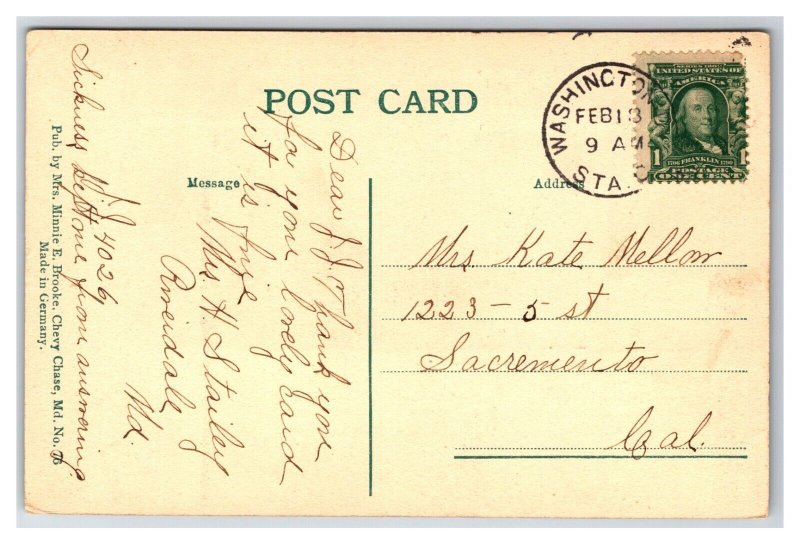 POST CARD
Message
Address
WASHINGTON
FEB 13
9 AM
STA.
SERIES 1902
UNITED STATES OF
AMERICA
1706 FRANKLIN 1790
1
POSTAGE
ONE CENT
Mrs Kate Mellow
1223 - 5 st
Sacremento
Cal.
Dear J. J. Thank you
for your lovely card
it is fine
Mrs H. Stailey
Riverdale
Md.
J. J. 4026
Sickness kept me from answering
Pub. by Mrs. Minnie E. Brooke, Chevy Chase, Md. No. 76
Made in Germany.